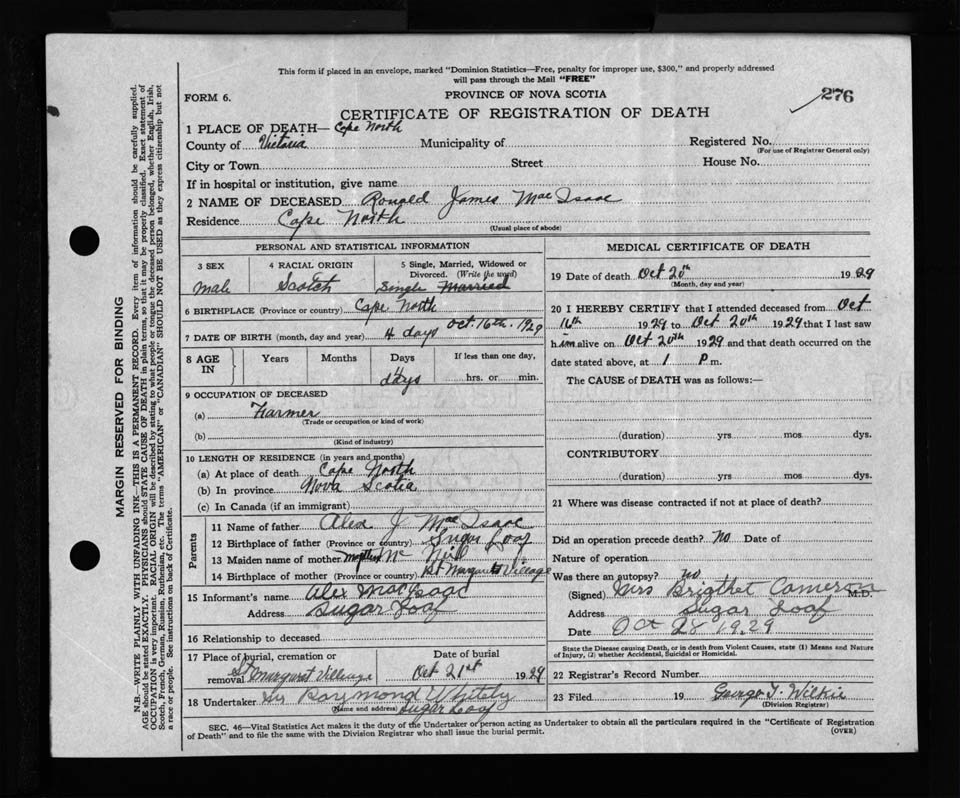 This form if placed in an envelope, marked "Dominion Statistics—Free, penalty for improper use, $300," and properly addressed
will pass through the Mail "FREE"
FORM 6.
PROVINCE OF NOVA SCOTIA
276
CERTIFICATE OF REGISTRATION OF DEATH
1 PLACE OF DEATH— Cape North
County of Victoria Municipality of Registered No.
(For use of Registrar General only)
City or Town Street House No.
If in hospital or institution, give name
2 NAME OF DECEASED Ronald James MacIsaac
Residence Cape North
(Usual place of abode)
PERSONAL AND STATISTICAL INFORMATION
3 SEX 4 RACIAL ORIGIN 5 Single, Married, Widowed or
Divorced. (Write the word)
Male Scotch Single Married
6 BIRTHPLACE (Province or country) Cape North
7 DATE OF BIRTH (month, day and year) 4 days Oct. 16th. 1929
8 AGE IN Years Months Days If less than one day,
4 days hrs. or min.
9 OCCUPATION OF DECEASED
(a) Farmer
(Trade or occupation or kind of work)
(b)
(Kind of industry)
10 LENGTH OF RESIDENCE (in years and months)
(a) At place of death Cape North
(b) In province Nova Scotia
(c) In Canada (if an immigrant)
Parents
11 Name of father Alex J MacIsaac
12 Birthplace of father (Province or country) Sugar Loaf
13 Maiden name of mother Mc Neill
14 Birthplace of mother (Province or country) St Margarets Village
15 Informant's name Alex MacIsaac
Address Sugar Loaf
16 Relationship to deceased
17 Place of burial, cremation or removal St Margaret Village Date of burial Oct 21st 1929
18 Undertaker Raymond Whitely
(Name and address) Sugar Loaf
MEDICAL CERTIFICATE OF DEATH
19 Date of death Oct 20th 1929
(Month, day and year)
20 I HEREBY CERTIFY that I attended deceased from Oct
16th 1929 to Oct 20th 1929 that I last saw
him alive on Oct 20th 1929 and that death occurred on the
date stated above, at 1 P m.
The CAUSE of DEATH was as follows:—
(duration) yrs mos dys.
CONTRIBUTORY
(duration) yrs mos dys.
21 Where was disease contracted if not at place of death?
Did an operation precede death? No Date of
Nature of operation
Was there an autopsy? no
(Signed) Mrs Brigthet Cameron M.D.
Address Sugar Loaf
Date Oct 28 1929
State the Disease causing Death, or in death from Violent Causes, state (1) Means and Nature
of Injury, (2) whether Accidental, Suicidal or Homicidal.
22 Registrar's Record Number
23 Filed 19 George T. Wilkie
(Division Registrar)
SEC. 46—Vital Statistics Act makes it the duty of the Undertaker or person acting as Undertaker to obtain all the particulars required in the "Certificate of Registration
of Death" and to file the same with the Division Registrar who shall issue the burial permit.
(OVER)
MARGIN RESERVED FOR BINDING
N.B.—WRITE PLAINLY WITH UNFADING INK—THIS IS A PERMANENT RECORD. Every item of information should be carefully supplied.
AGE should be stated EXACTLY. PHYSICIANS should STATE CAUSE OF DEATH in plain terms, so that it may be properly classified. Exact statement of
OCCUPATION is very important. RACIAL ORIGIN will be described by stating to what people or tongue the deceased person belonged, whether English, Irish,
Scotch, French, German, Russian, Ruthenian, etc. The terms "AMERICAN" or "CANADIAN" SHOULD NOT BE USED as they express citizenship but not
a race or people. See instructions on back of Certificate.